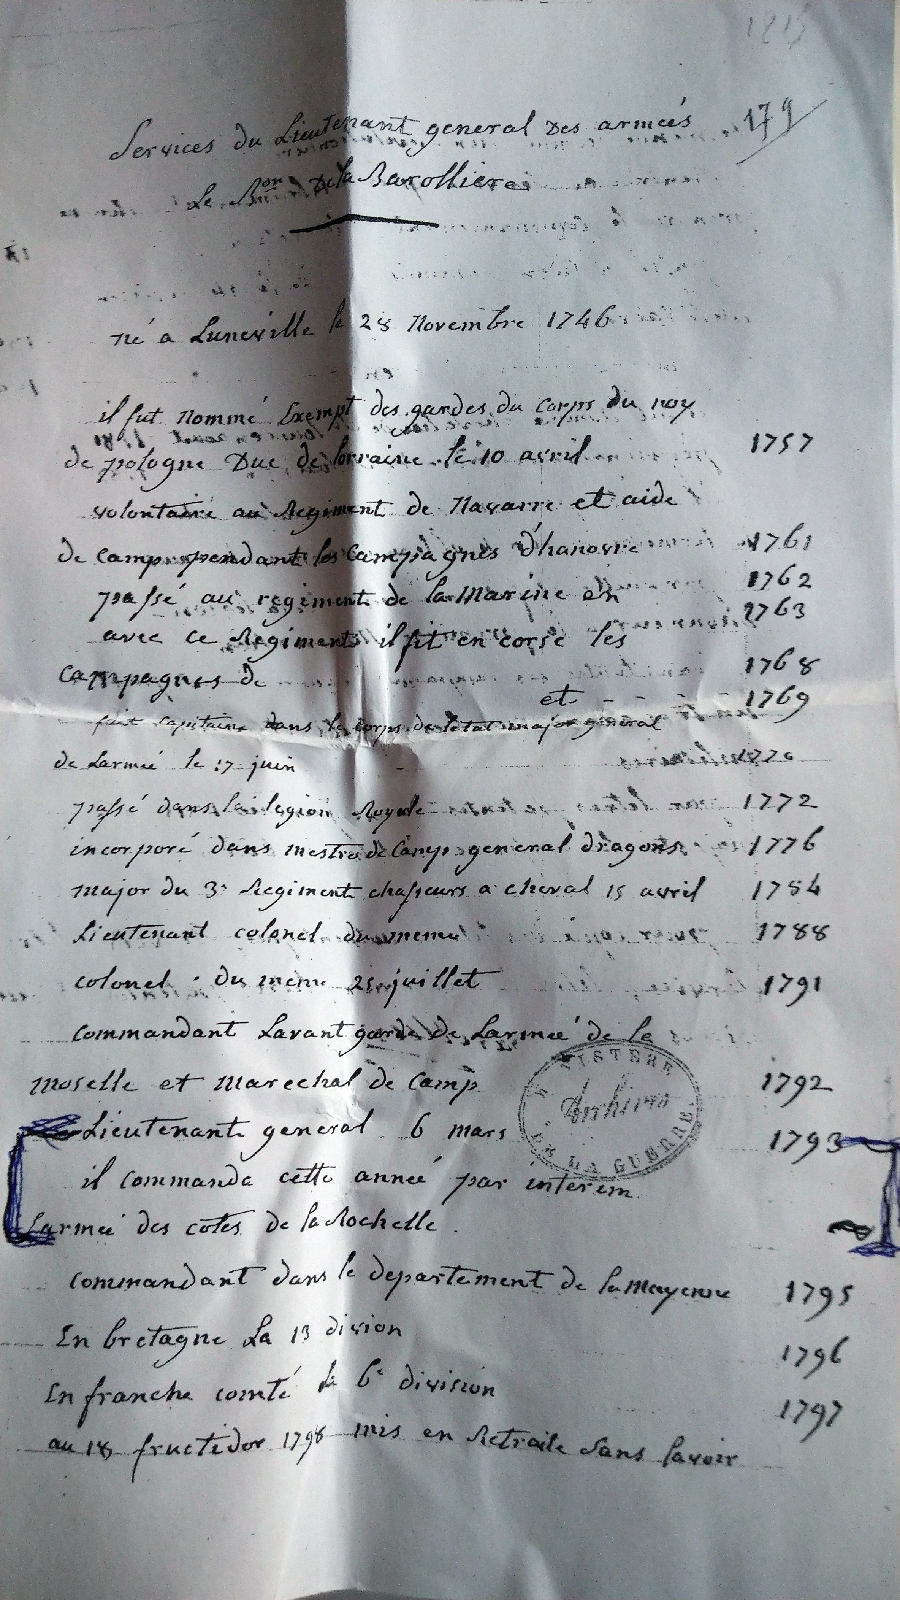 1815
179
Services du Lieutenant general des armeés
Le Bon De la Barolliere
né a Luneville le 28 Novembre 1746
il fut nommé Exempt des gardes du corps du roy
de pologne Duc de lorraine le 10 avril 1757
volontaire au Regiment de Navarre et aide
de camp pendant les Campagnes d'hanovre 1761
1762
passé au regiment de la Marine en 1763
avec ce Regiment il fit en corse les
campagnes de 1768
et 1769
fait capitaine dans le corps de letat major général
de Larmeé le 17 juin 1770
passé dans la legion Royale 1772
incorporé dans mestre de Camp general dragons 1776
major du 3e Regiment chasseurs a cheval 15 avril 1784
Lieutenant colonel du meme 1788
colonel du meme 25 juillet 1791
commandant Lavant garde de Larmeé de la
Moselle et Marechal de Camp 1792
MINISTERE DE LA GUERRE
Archives
Lieutenant general 6 mars 1793
il commanda cette anneé par interim
Larmeé des cotes de la Rochelle.
commandant dans le departement de la mayenne 1795
En bretagne La 13 divion 1796
En franche comté la 6e division 1797
au 18 fructidor 1798 mis en Retraite sans lavoir